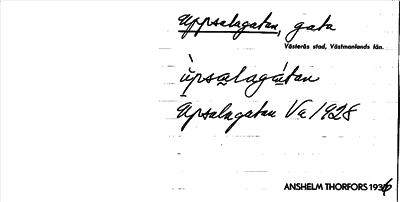 Uppsalagatan, gata
Västerås stad, Västmanlands län.
ùpsalagátan
Upsalagatan Va 1928
ANSHELM THORFORS 1936